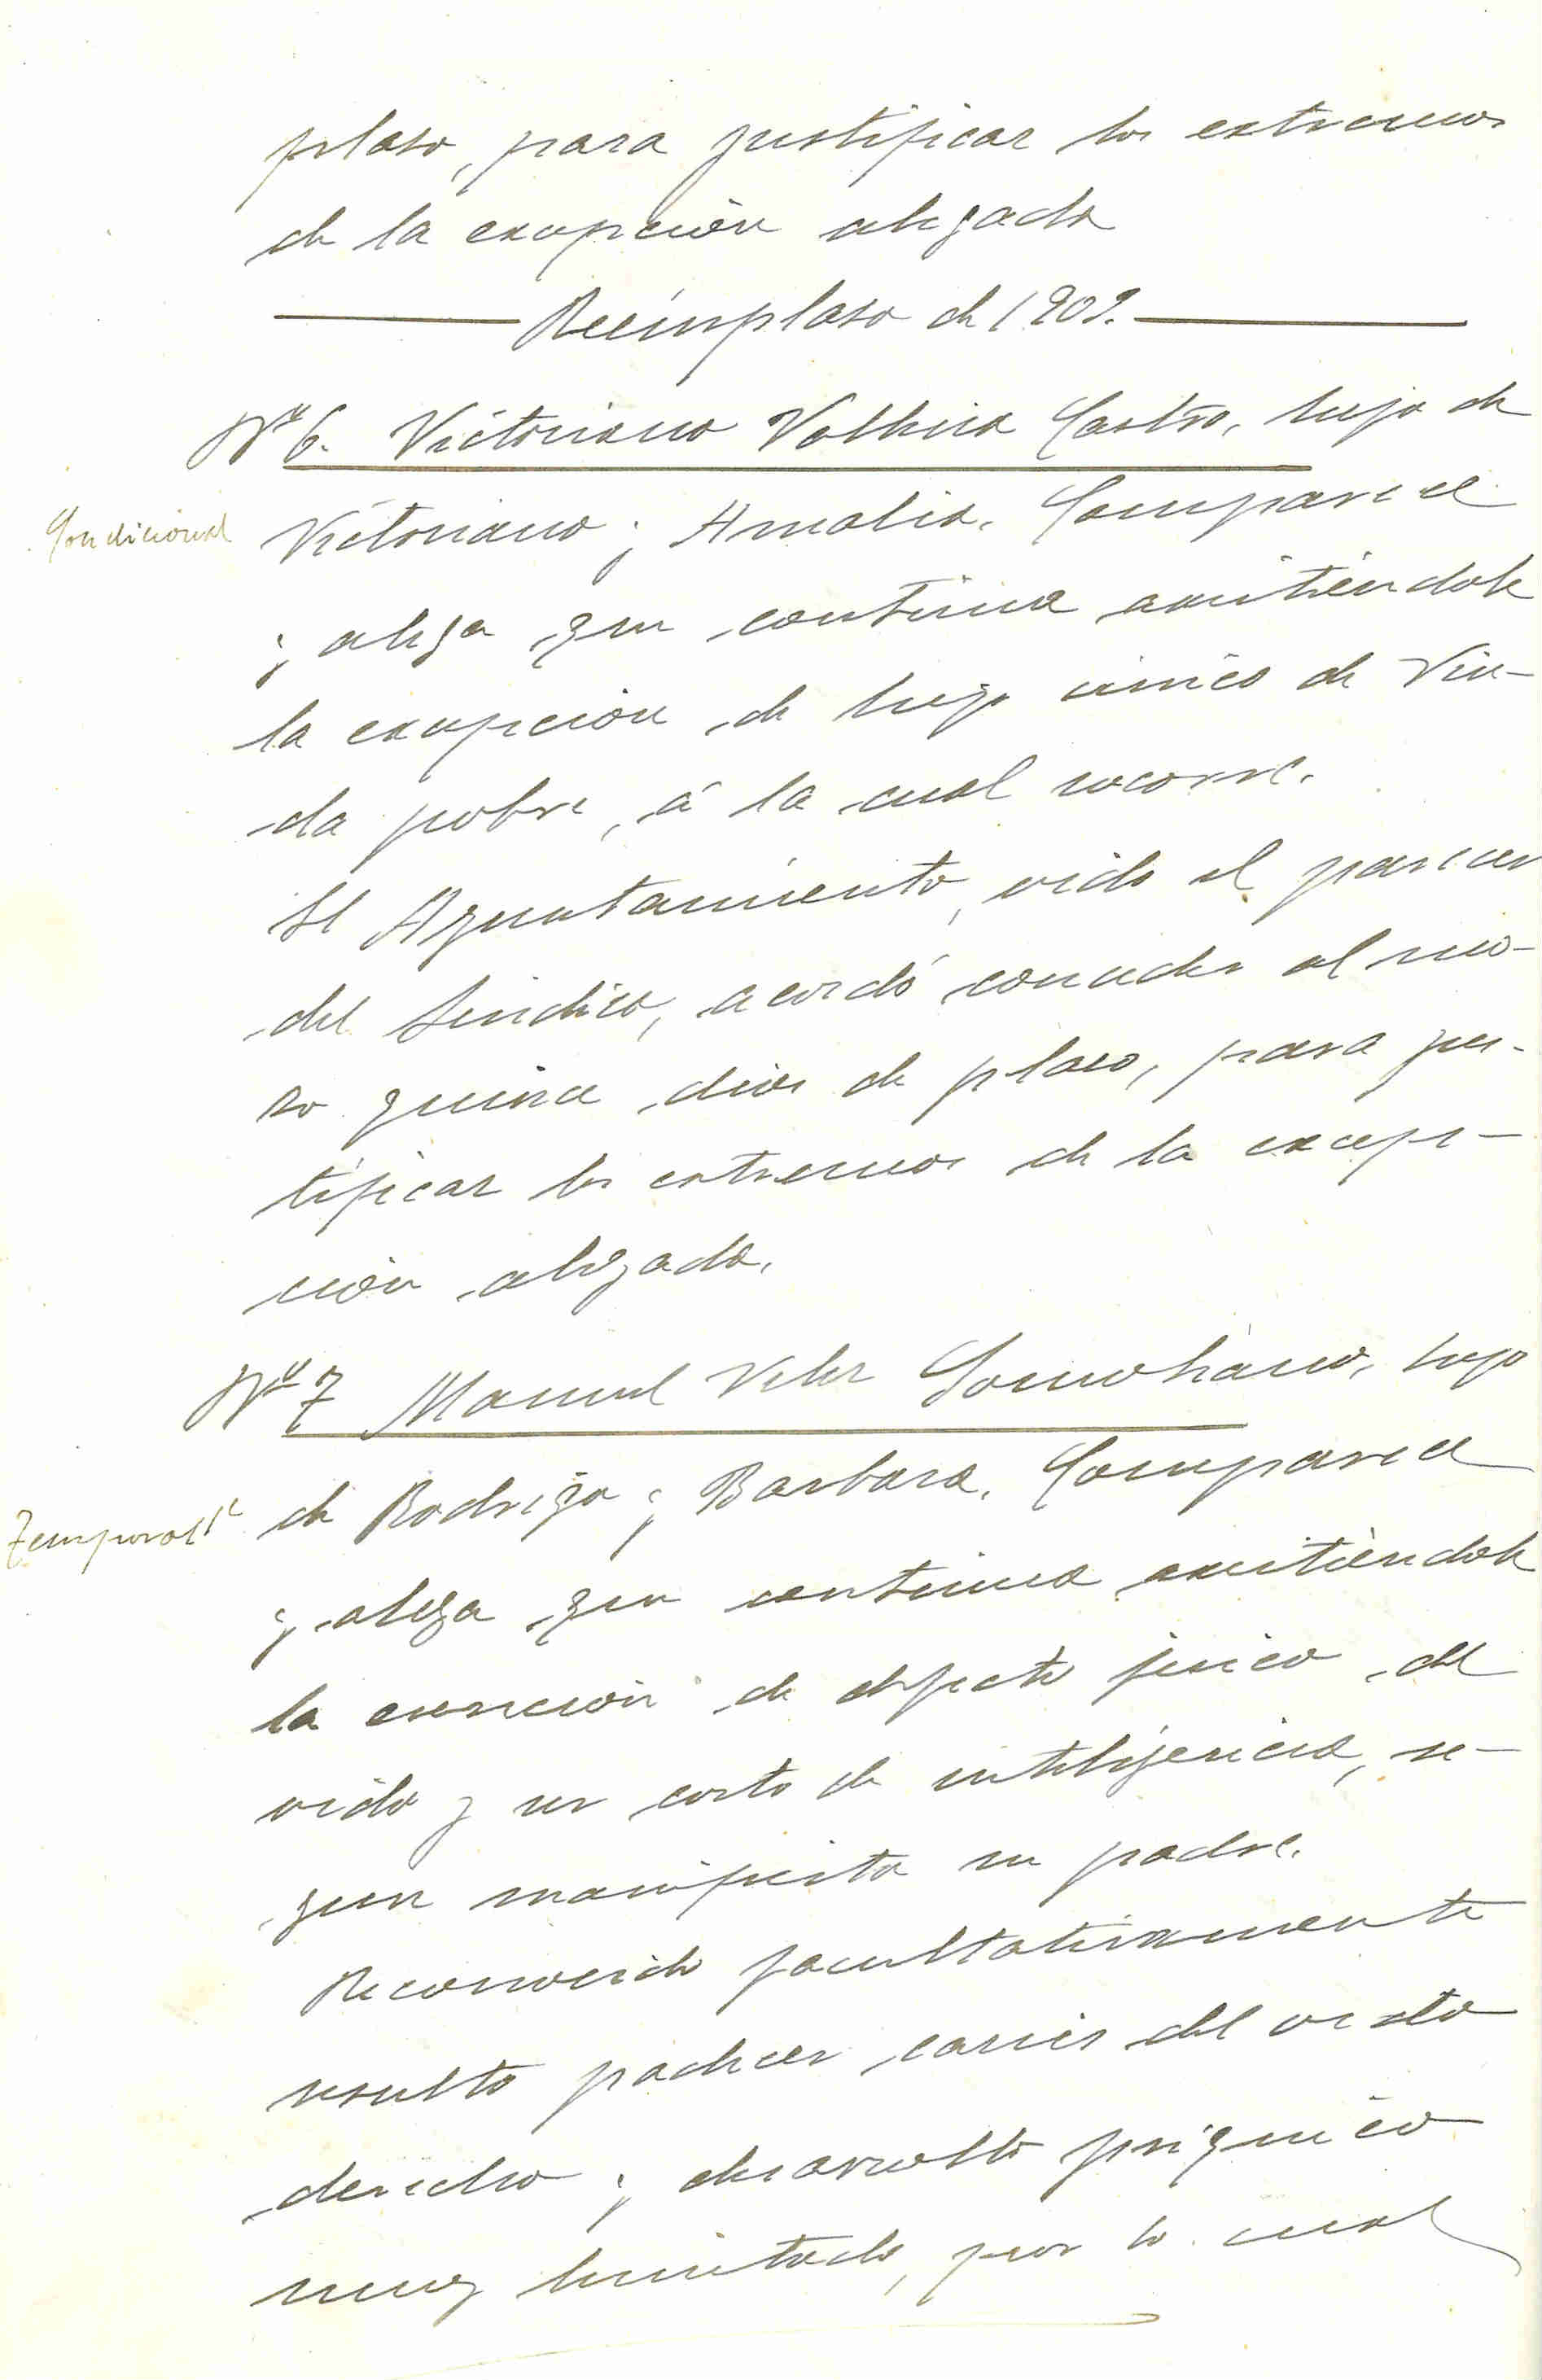 plaso, para justificar los extremos
de la excepción alegada
Reémplaso de 1909.
Nº 6. Victoriano Vallina Castro, hijo de
Condicional
Victoriano y Amalia. Comparece
y alega que continua existiéndole
la excepción de hijo único de Viu-
da pobre, á la cual socorre.
El Ayuntamiento, oido el parecer
del Sindico, acordó conceder al mo-
so quince dias de plaso, para jus-
tificar los extremos de la excep-
ción alegada.
Nº 7 Manuel Veler Somohano, hijo
de Rodrigo y Barbara. Comparece
Temporal
y alega que continua existiéndole
la exención de defecto fisico del
oido y ser corto de inteligencia, se-
gun manifiesta su padre.
Reconocido facultativamente
resulto padecer caries del oido
derecho y desarrollo psiquico
muy limitado, por lo cual